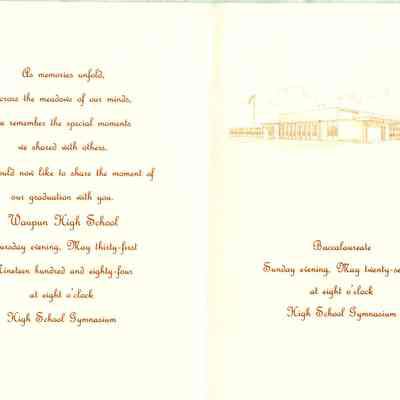 As memories unfold,
across the meadows of our minds,
we remember the special moments
we shared with others.
would now like to share the moment of
our graduation with you.
Waupun High School
Thursday evening, May thirty-first
Nineteen hundred and eighty-four
at eight o'clock
High School Gymnasium
Baccalaureate
Sunday evening, May twenty-se
at eight o'clock
High School Gymnasium